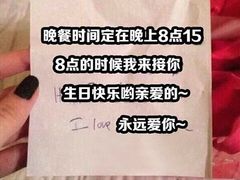 晚餐时间定在晚上8点15
8点的时候我来接你
生日快乐哟亲爱的~
I love
永远爱你~